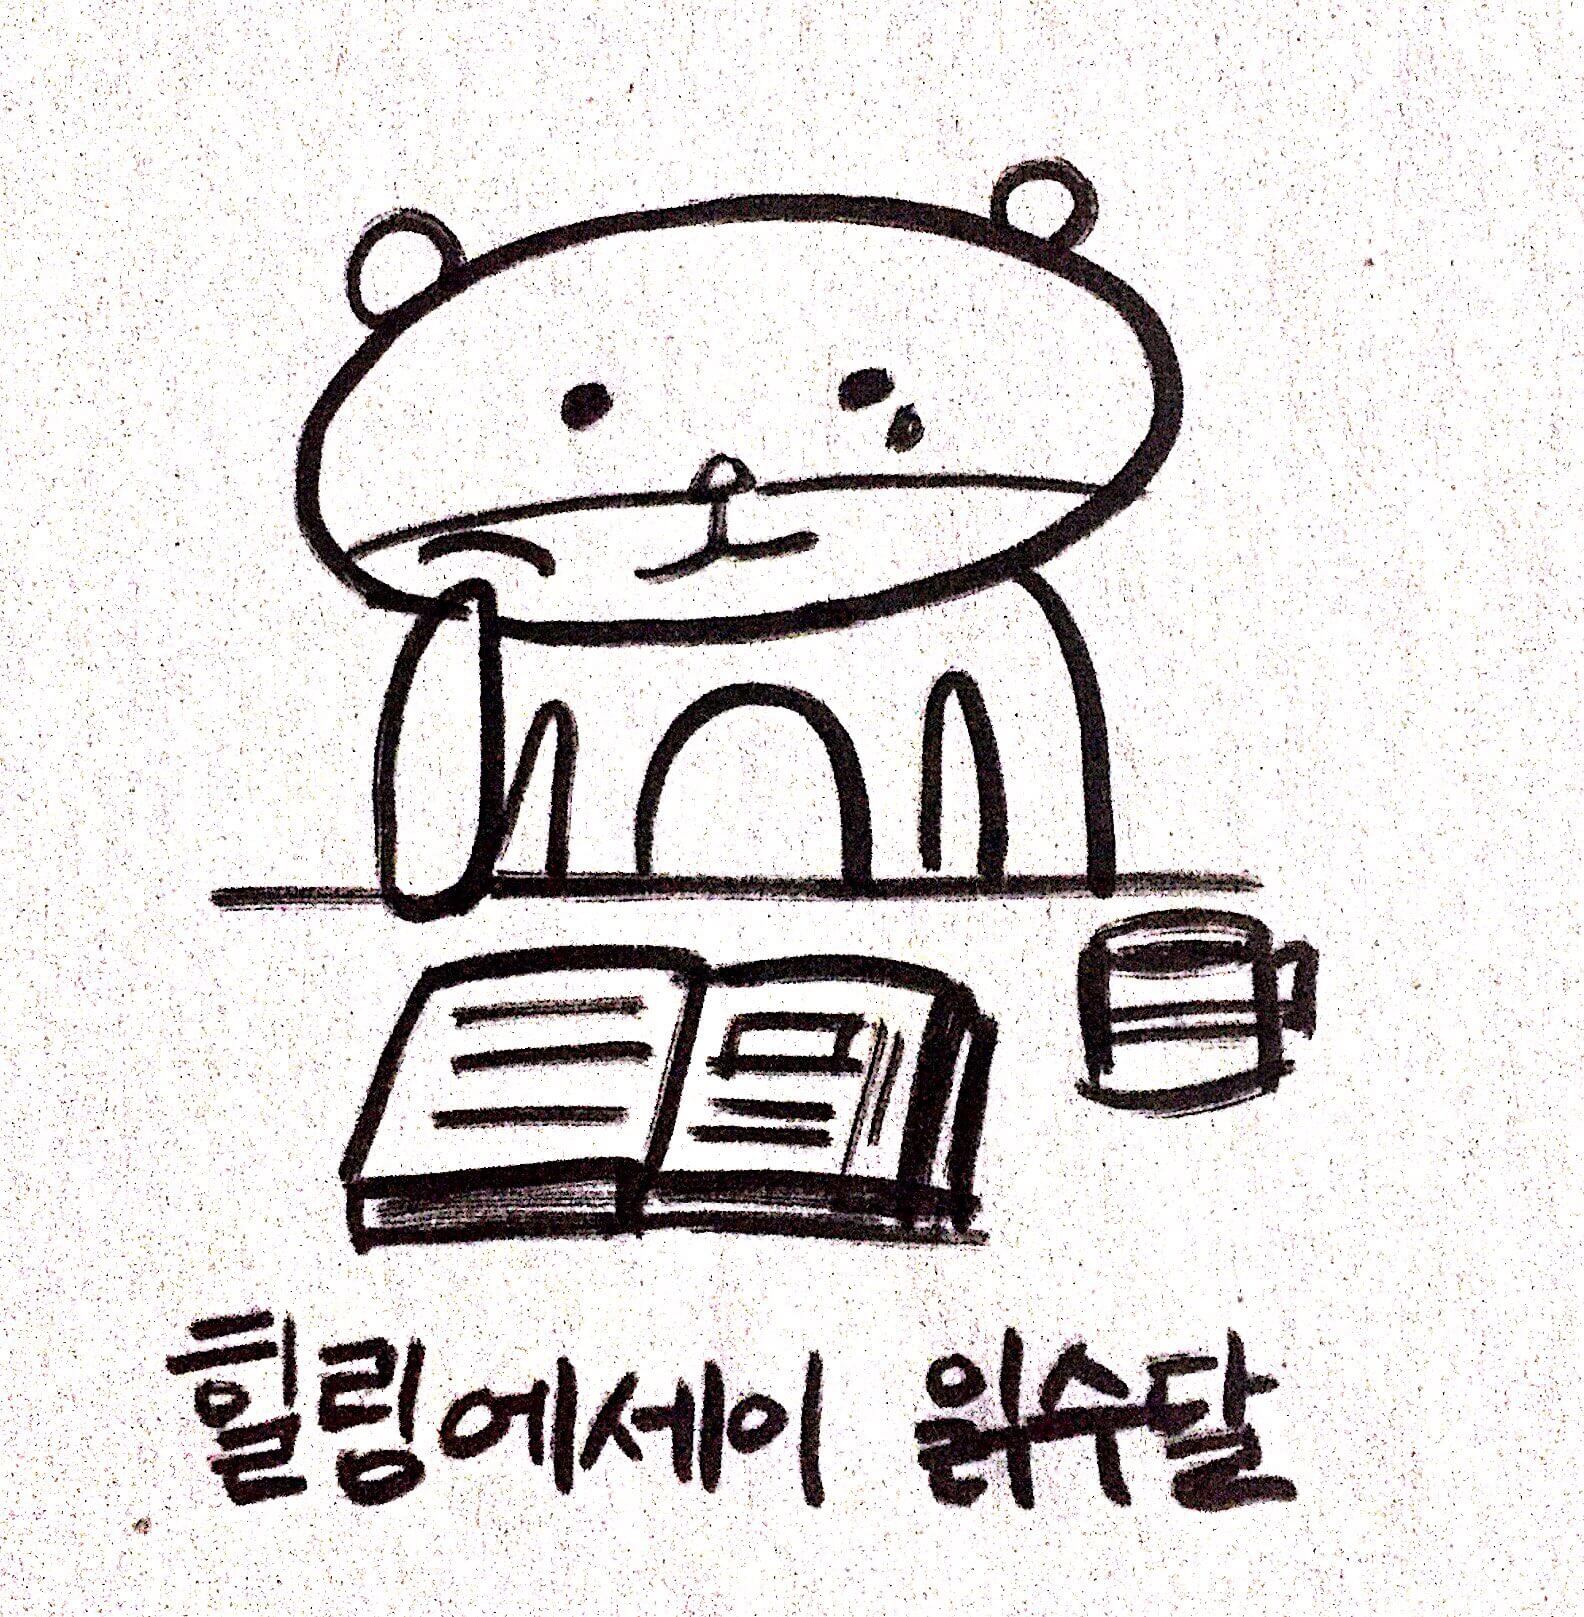 힐링에세이 읽수달